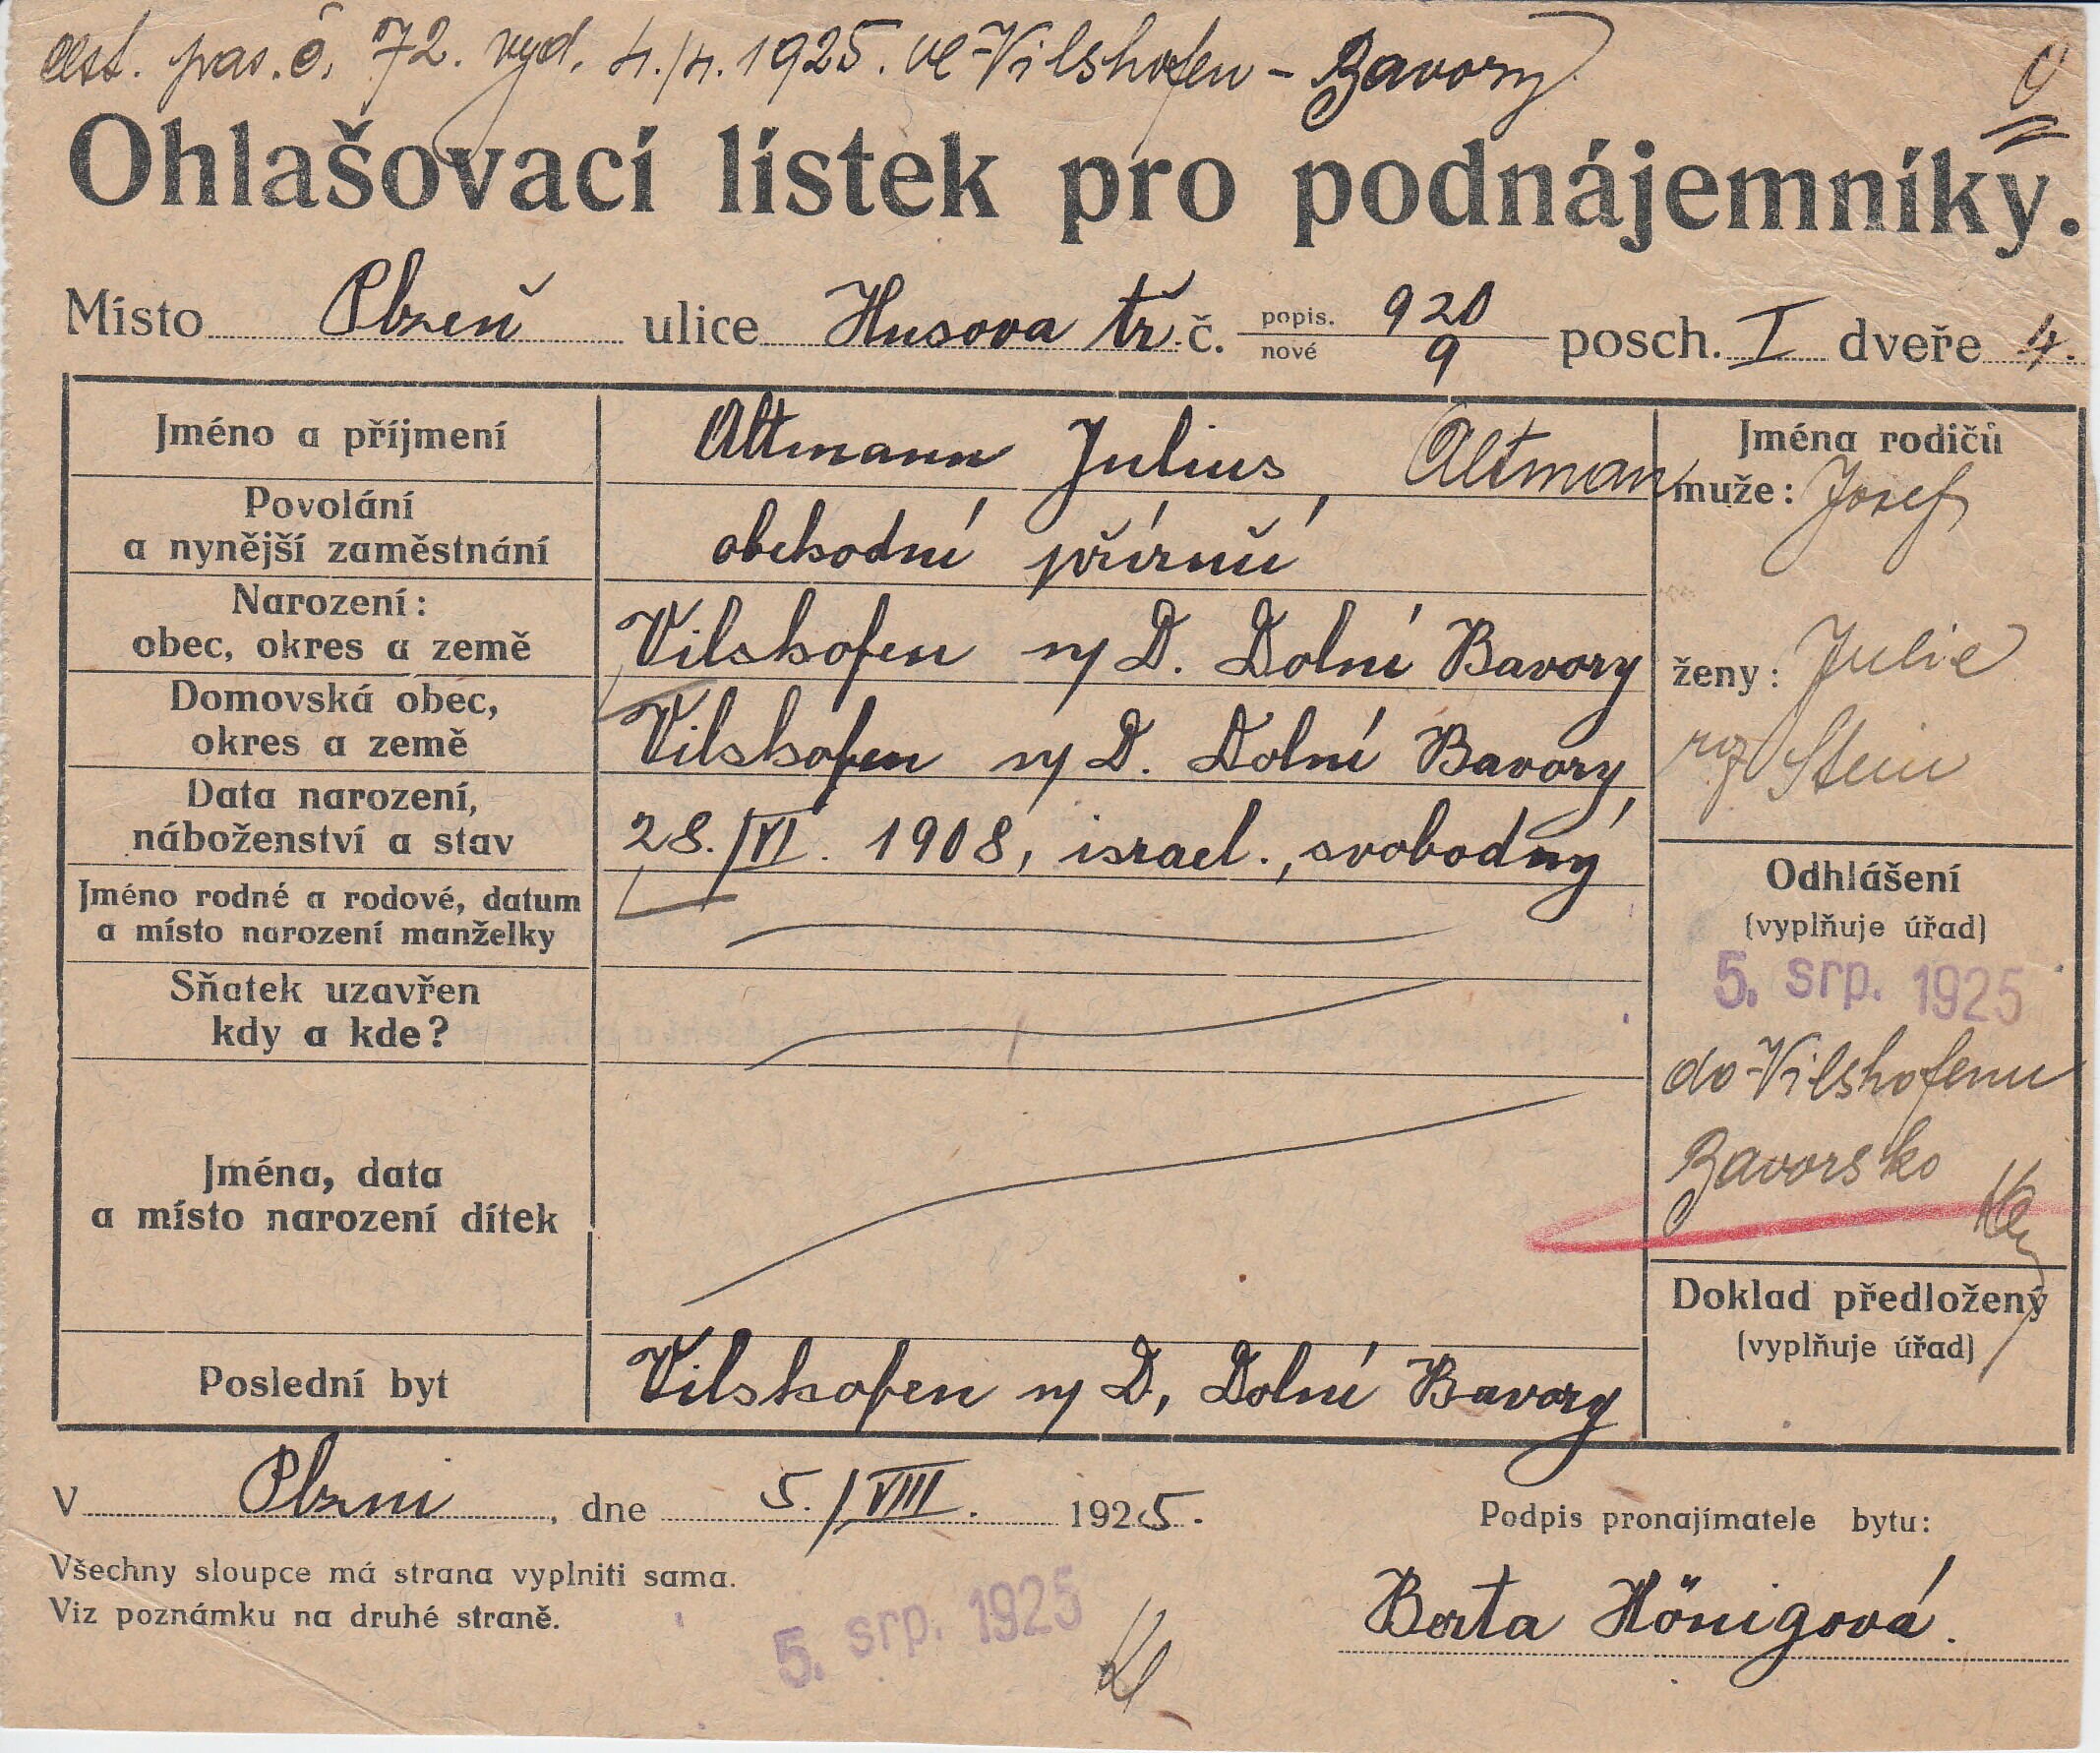 cest. pas. č. 72. vyd. 4./4. 1925. ve Vilshofen - Bavory
Ohlašovací lístek pro podnájemníky.
Místo Plzeň ulice Husova tř. č. popis. 920 nové 9 posch. I dveře 4.
Jméno a příjmení Altmann Julius, Altman
Jména rodičů
muže: Josef
Povolání
a nynější zaměstnání obchodní příručí
Narození:
obec, okres a země Vilshofen n/ D. Dolní Bavory
ženy: Julie
roz Stein
Domovská obec,
okres a země Vilshofen n/ D. Dolní Bavory,
Data narození,
náboženství a stav 28./VI. 1908, israel., svobodný
Jméno rodné a rodové, datum
a místo narození manželky
Odhlášení
(vyplňuje úřad)
5. srp. 1925
do Vilshofenu
Bavorsko
Sňatek uzavřen
kdy a kde?
Jména, data
a místo narození dítek
Doklad předložený
(vyplňuje úřad)
Poslední byt Vilshofen n/ D, Dolní Bavory
V Plzni, dne 5./VIII. 1925.
Podpis pronajímatele bytu:
Všechny sloupce má strana vyplniti sama.
Viz poznámku na druhé straně.
5. srp. 1925
Berta Hönigová.